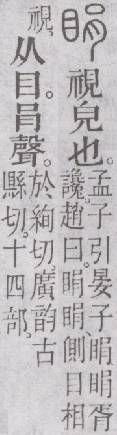 睊視皃也。
孟子引晏子睊睊胥
讒。趙曰。睊睊、側目相
視。
从目。肙聲。
於絢切。廣韵古
縣切。十四部。